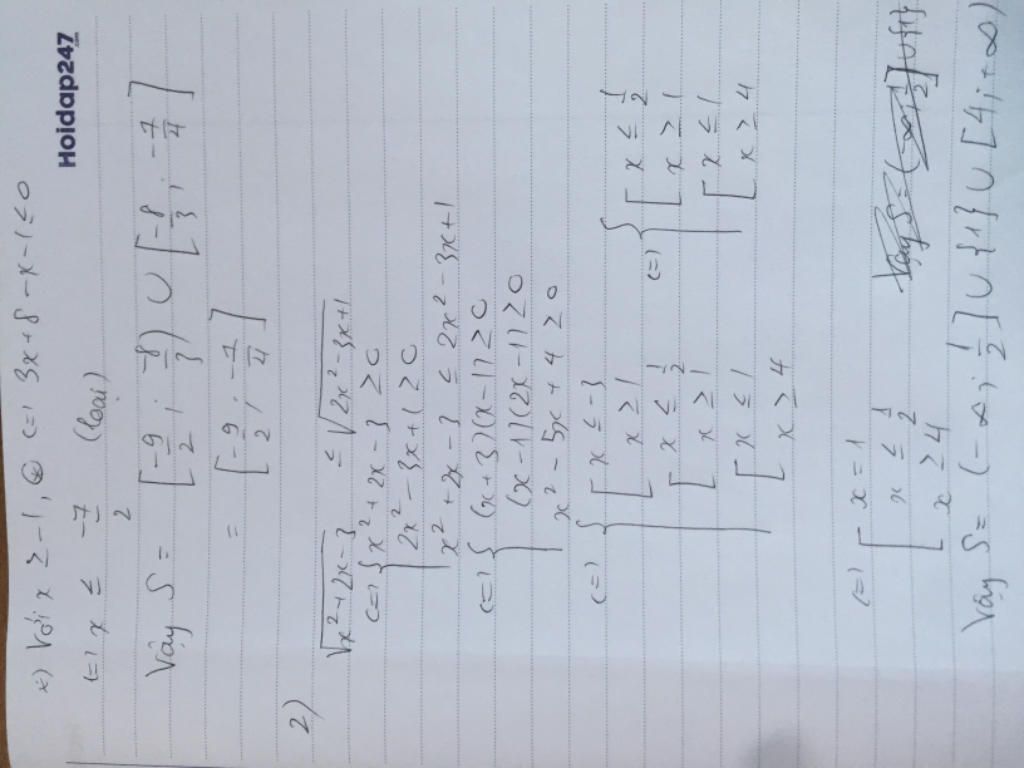 Hoidap247.com
*) Với x ≥ -1, ⊛ (=) 3x + 8 - x - 1 ≤ 0
(=) x ≤ -7/2 (loại)
Vậy S = [-9/2 ; -8/3) ∪ [-8/3 ; -7/4]
= [-9/2 ; -7/4]
2)
√(x² + 2x - 3) ≤ √(2x² - 3x + 1)
(=) { x² + 2x - 3 ≥ 0
2x² - 3x + 1 ≥ 0
x² + 2x - 3 ≤ 2x² - 3x + 1
(=) { (x + 3)(x - 1) ≥ 0
(x - 1)(2x - 1) ≥ 0
x² - 5x + 4 ≥ 0
(=) { [ x ≤ -3
x ≥ 1
[ x ≤ 1/2
x ≥ 1
[ x ≤ 1
x ≥ 4
(=) { [ x ≤ 1/2
x ≥ 1
[ x ≤ 1
x ≥ 4
(=) [ x = 1
x ≤ 1/2
x ≥ 4
Vậy S = (-∞ ; 1/2] ∪ {1}
Vậy S = (-∞ ; 1/2] ∪ {1} ∪ [4 ; +∞)